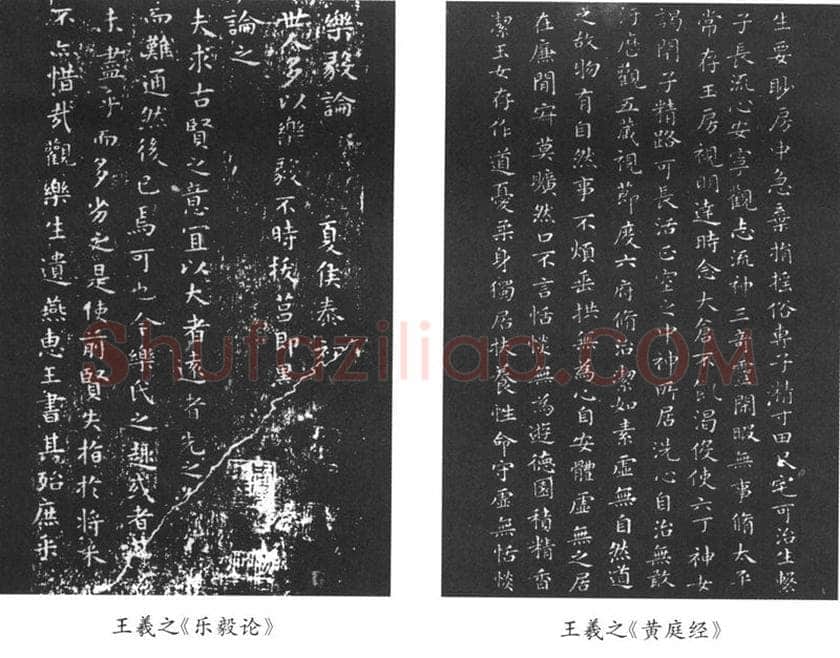 樂毅論 夏侯泰初
世人多以樂毅不時拔莒即墨
論之
夫求古賢之意宜以大者遠者先之
而難通然後已焉可也今樂氏之趣或者其
未盡乎而多劣之是使前賢失指於將來
不亦惜哉觀樂生遺燕惠王書其殆庶乎
王羲之《乐毅论》
生要眇房中急棄捐搖俗專子精寸田尺宅可治生繫
子長流心安寧觀志流神三奇靈閒暇無事脩太平
常存玉房視明達時念大倉不飢渴役使六丁神女
謁閉子精路可長活正室之中神所居洗心自治無敢
汙歷觀五藏視節度六府脩治潔如素虛無自然道
之故物有自然事不煩垂拱無為心自安體虛無之居
在廉間寂莫曠然口不言恬惔無為遊德園積精香
潔玉女存作道憂柔身獨居扶養性命守虛無恬惔
王羲之《黄庭经》
Shufaziliao.COM